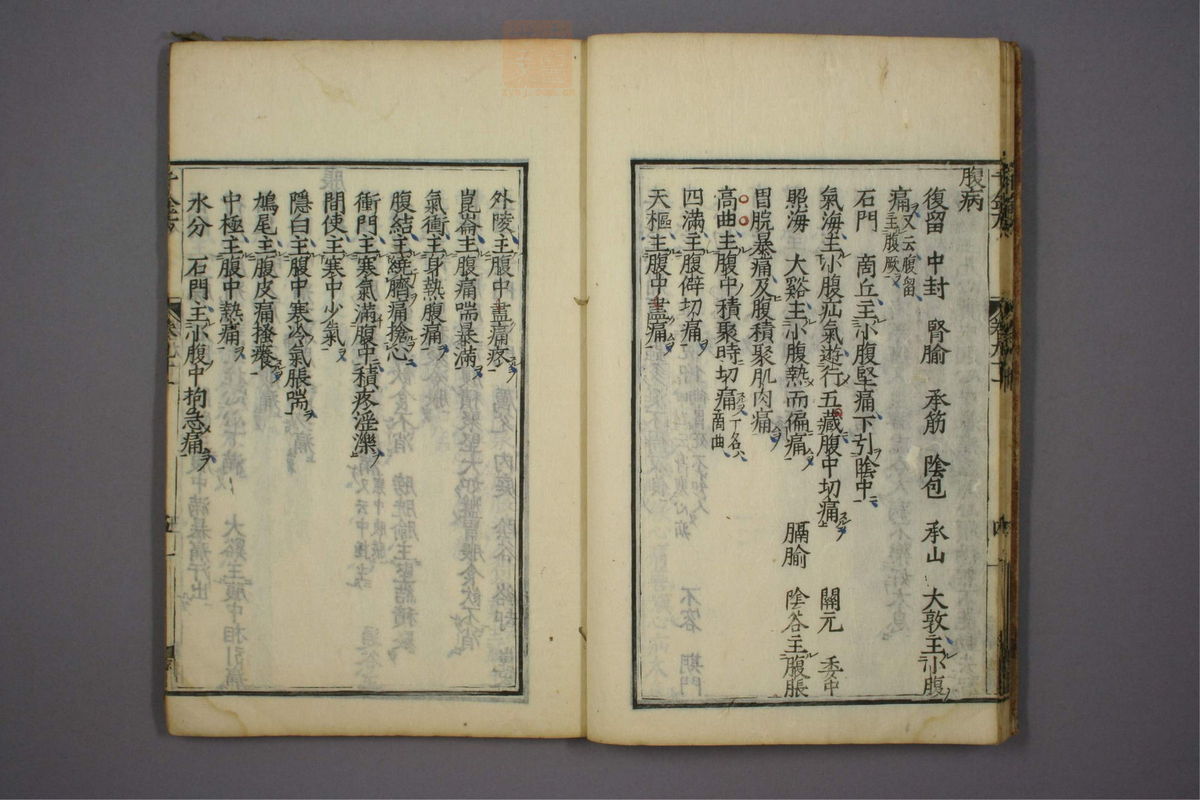 腹病
復留　中封　腎腧　承筋　陰包　承山　大敦主小腹
痛又云腹留主腹厥
石門　啇丘主小腹堅痛下引陰中
氣海主小腹疝氣遊行五藏腹中切痛　關元　委中
照海　大谿主小腹熱而偏痛　膈腧　陰谷主腹脹
胃脘暴痛及腹積聚肌肉痛
高曲主腹中積聚時切痛一名啇曲
四滿主腹僻切痛
天樞主腹中盡痛
外陵主腹中盡痛疼
崑崙主腹痛喘暴滿
氣衝主身熱腹痛
腹結主繞臍痛搶心
衝門主寒氣滿腹中積疼淫濼
間使主寒中少氣
隱白主腹中寒冷氣脹喘
鳩尾主腹皮痛搔癢
中極主腹中熱痛
水分　石門主小腹中拘急痛